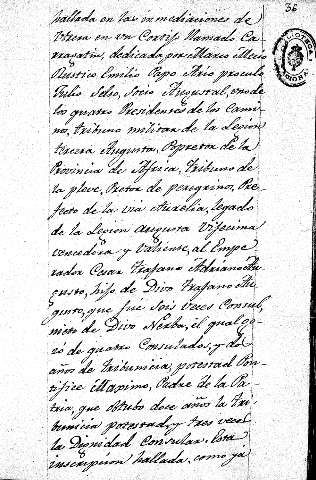 36
hallada en las inmediaciones de
Utrera en un Cortijo llamado Ca-
rragatin, dedicada por Marco Mecio
Rustico Emilio Papo Ario proculo
Julio Selso, Socio Augustal, uno de
los quatro Presidentes de los Cami-
no, tribuno militar de la Lesion
tercera Augusta, Propretor de la
Provincia de Africa, tribuno de
la pleve, Pretor de peregrino, Pre-
fecto de la via Aurelia, legado
de la Lesion Augusta Vijesima
vencedora y Valiente, al Empe-
rador Cesar Trajano Adriano Au-
gusto, hijo de Divo Trajano Au-
gusto, que fué Seis Veces Consul,
nieto de Divo Nerba, el qual go-
zó de quatro Consulados, y dos
años de tribunicia potestad Pon-
tifice Maximo, Padre de la Pa-
tria, que obtubo doce años la tri-
bunicia potestad, y tres veces
la Dignidad Consular. Esta
inscripcion hallada, como ya